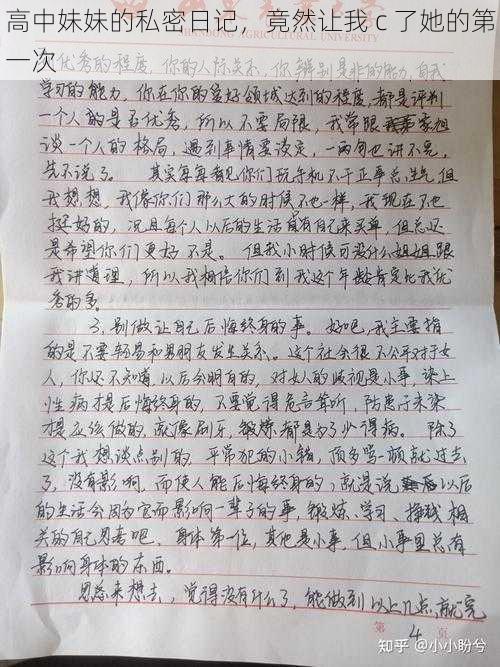 高中妹妹的私密日记，竟然让我 c 了她的第
一次
优秀的程度，你的人际关系，你辨别是非的能力，自我
学习的能力，你在你的爱好领域达到的程度，都是评判
一个人的是否优秀，所以不要局限，我常跟我家祖
谈一个人的格局，遇到事情要淡定，一两句也讲不完，
先不说了。 其实每每看见你们玩手机不干正事总生气但
我想想，我像你们那么大的时候不也一样，我现在不也
挺好的，况且每个人以后的生活自有自己来买单，但总还
是希望你们更好不是。 但我小时候可没什么姐姐跟
我讲道理，所以我相信你们到我这个年龄肯定比我优
秀的多。
3、别做让自己后悔终身的事。 好吧，我主要指
的是不要轻易和男朋友发生关系。这个社会很不公平对于女
人，你还不知道，以后会明白的，对女人的歧视是小事，染上
性病才是后悔终身的，不要觉得危言耸听，防患于未然
才是应该做的，就像刷牙，锻炼都是为了少得病。 除了
这个我想谈点别的，平常犯的小错，顶多骂一顿就过去
了，没有影响，而使人能后悔终身的，就是说以后
的生活会因为它而影响一辈子的事，锻炼、学习、挣钱相
关的自己思考吧、身体第一位，其他是小事，但小事里总有
影响身体的东西。
思来想去，觉得没有什么了，能做到以上几点，就完
第 4 页
知乎 @小小盼兮